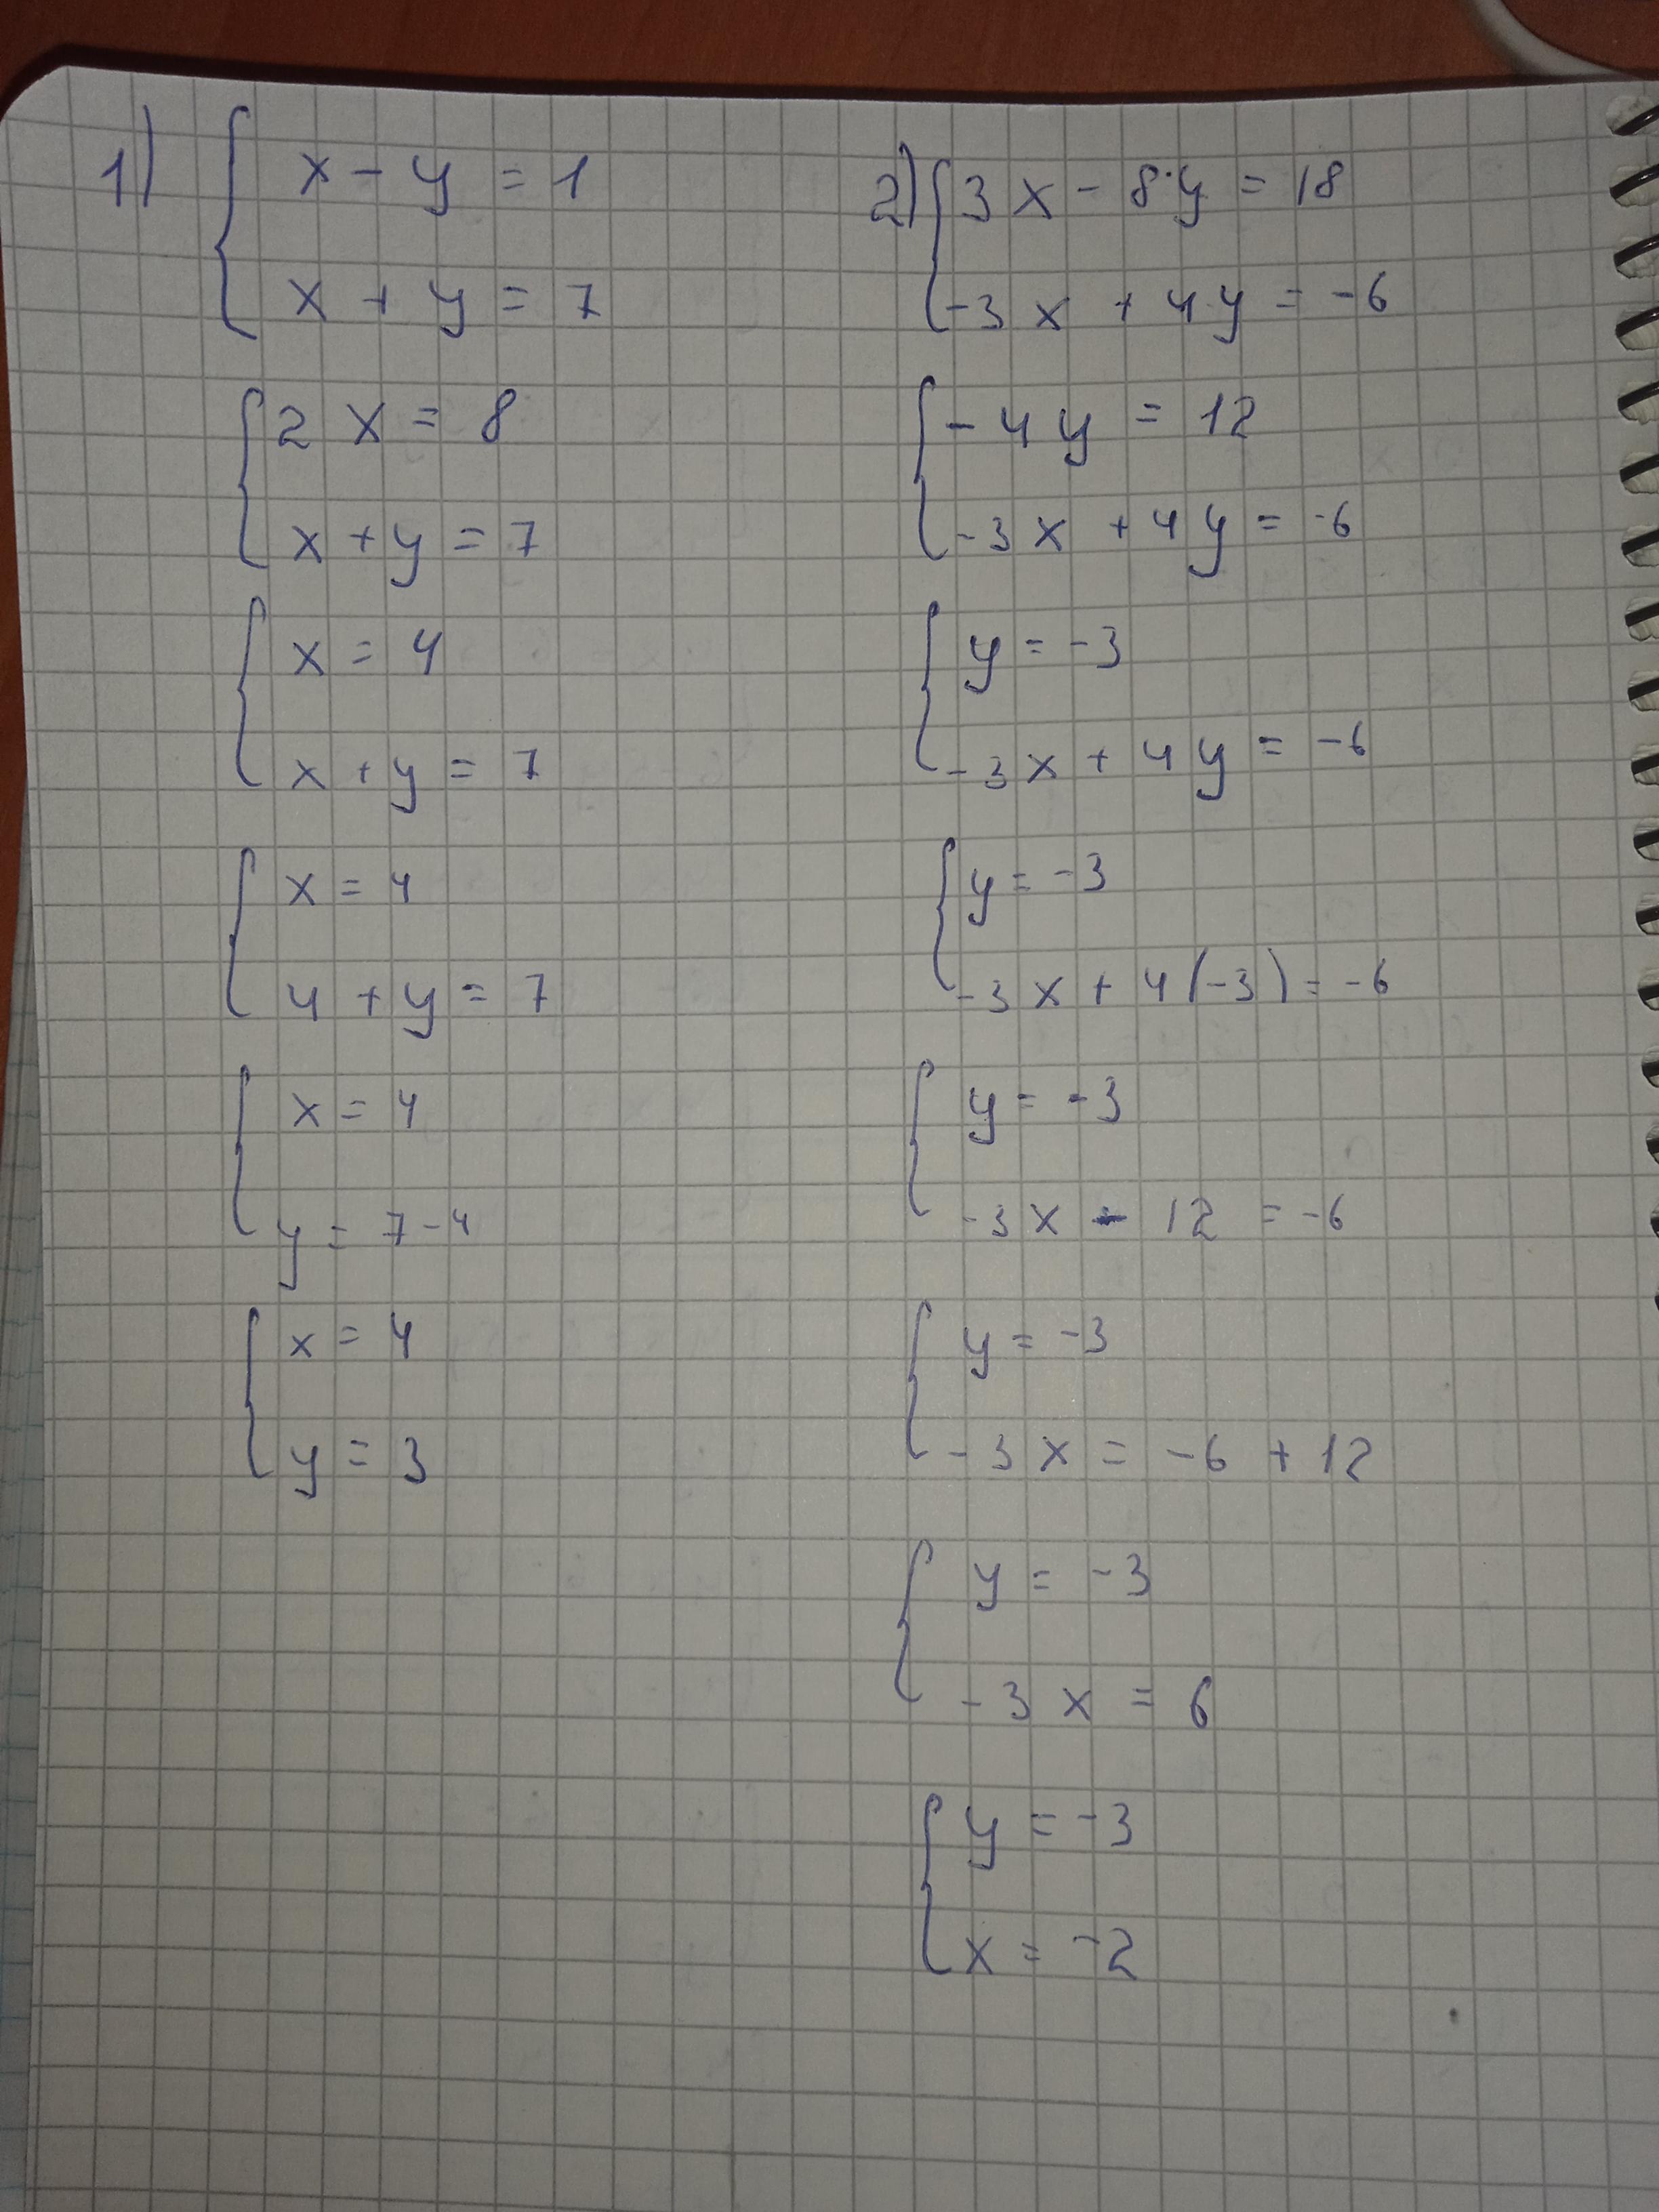 1)
x - y = 1
x + y = 7
2x = 8
x + y = 7
x = 4
x + y = 7
x = 4
4 + y = 7
x = 4
y = 7 - 4
x = 4
y = 3
2)
3x - 8·y = 18
-3x + 4y = -6
-4y = 12
-3x + 4y = -6
y = -3
-3x + 4y = -6
y = -3
-3x + 4(-3) = -6
y = -3
-3x - 12 = -6
y = -3
-3x = -6 + 12
y = -3
-3x = 6
y = -3
x = -2